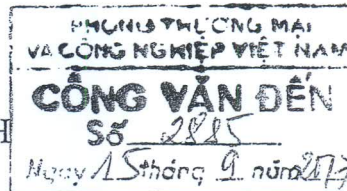 PHÒNG THƯƠNG MẠI
VÀ CÔNG NGHIỆP VIỆT NAM
CÔNG VĂN ĐẾN
Số 2885
Ngày 15 tháng 9 năm